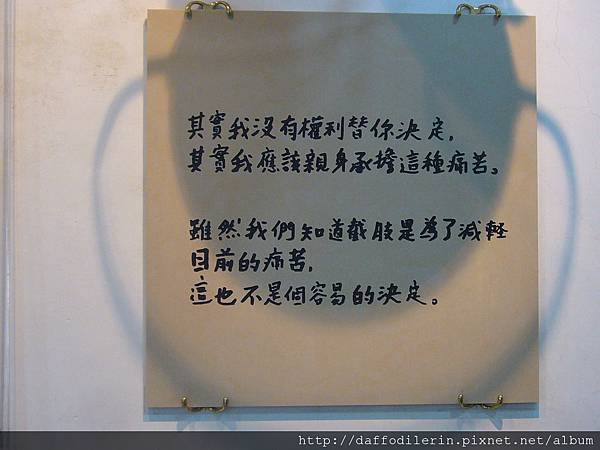 其實我沒有權利替你決定，
其實我應該親身承擔這種痛苦。
雖然我們知道截肢是為了減輕
目前的痛苦，
這也不是個容易的決定。
http://daffodilerin.pixnet.net/album